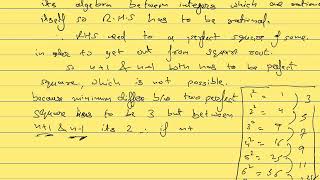 its algebra between integers which are rational
itself so R.H.S has to be rational.
RHS need to a perfect square of some.
in order to get out from square root.
so n+1 & n-1 both has to be perfect
square, which is not possible.
because minimum differ b/w two perfect
square has to be 3 but between
n+1 & n-1 its 2 ∴ if n+
1² = 1
2² = 4
3² = 9
4² = 16
5² = 25
6² = 36
3
5
7
9
11